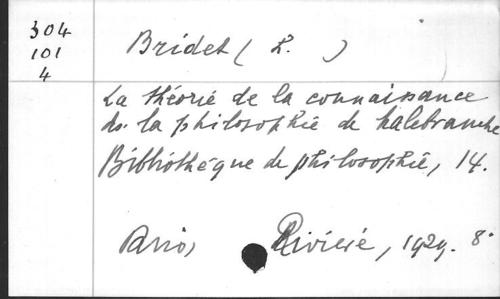 304
101
4
Bridet ( L. )
La théorie de la connaissance
ds. la philosophie de Malebranche
Bibliothèque de philosophie, 14.
Paris, Rivière, 1929. 8°